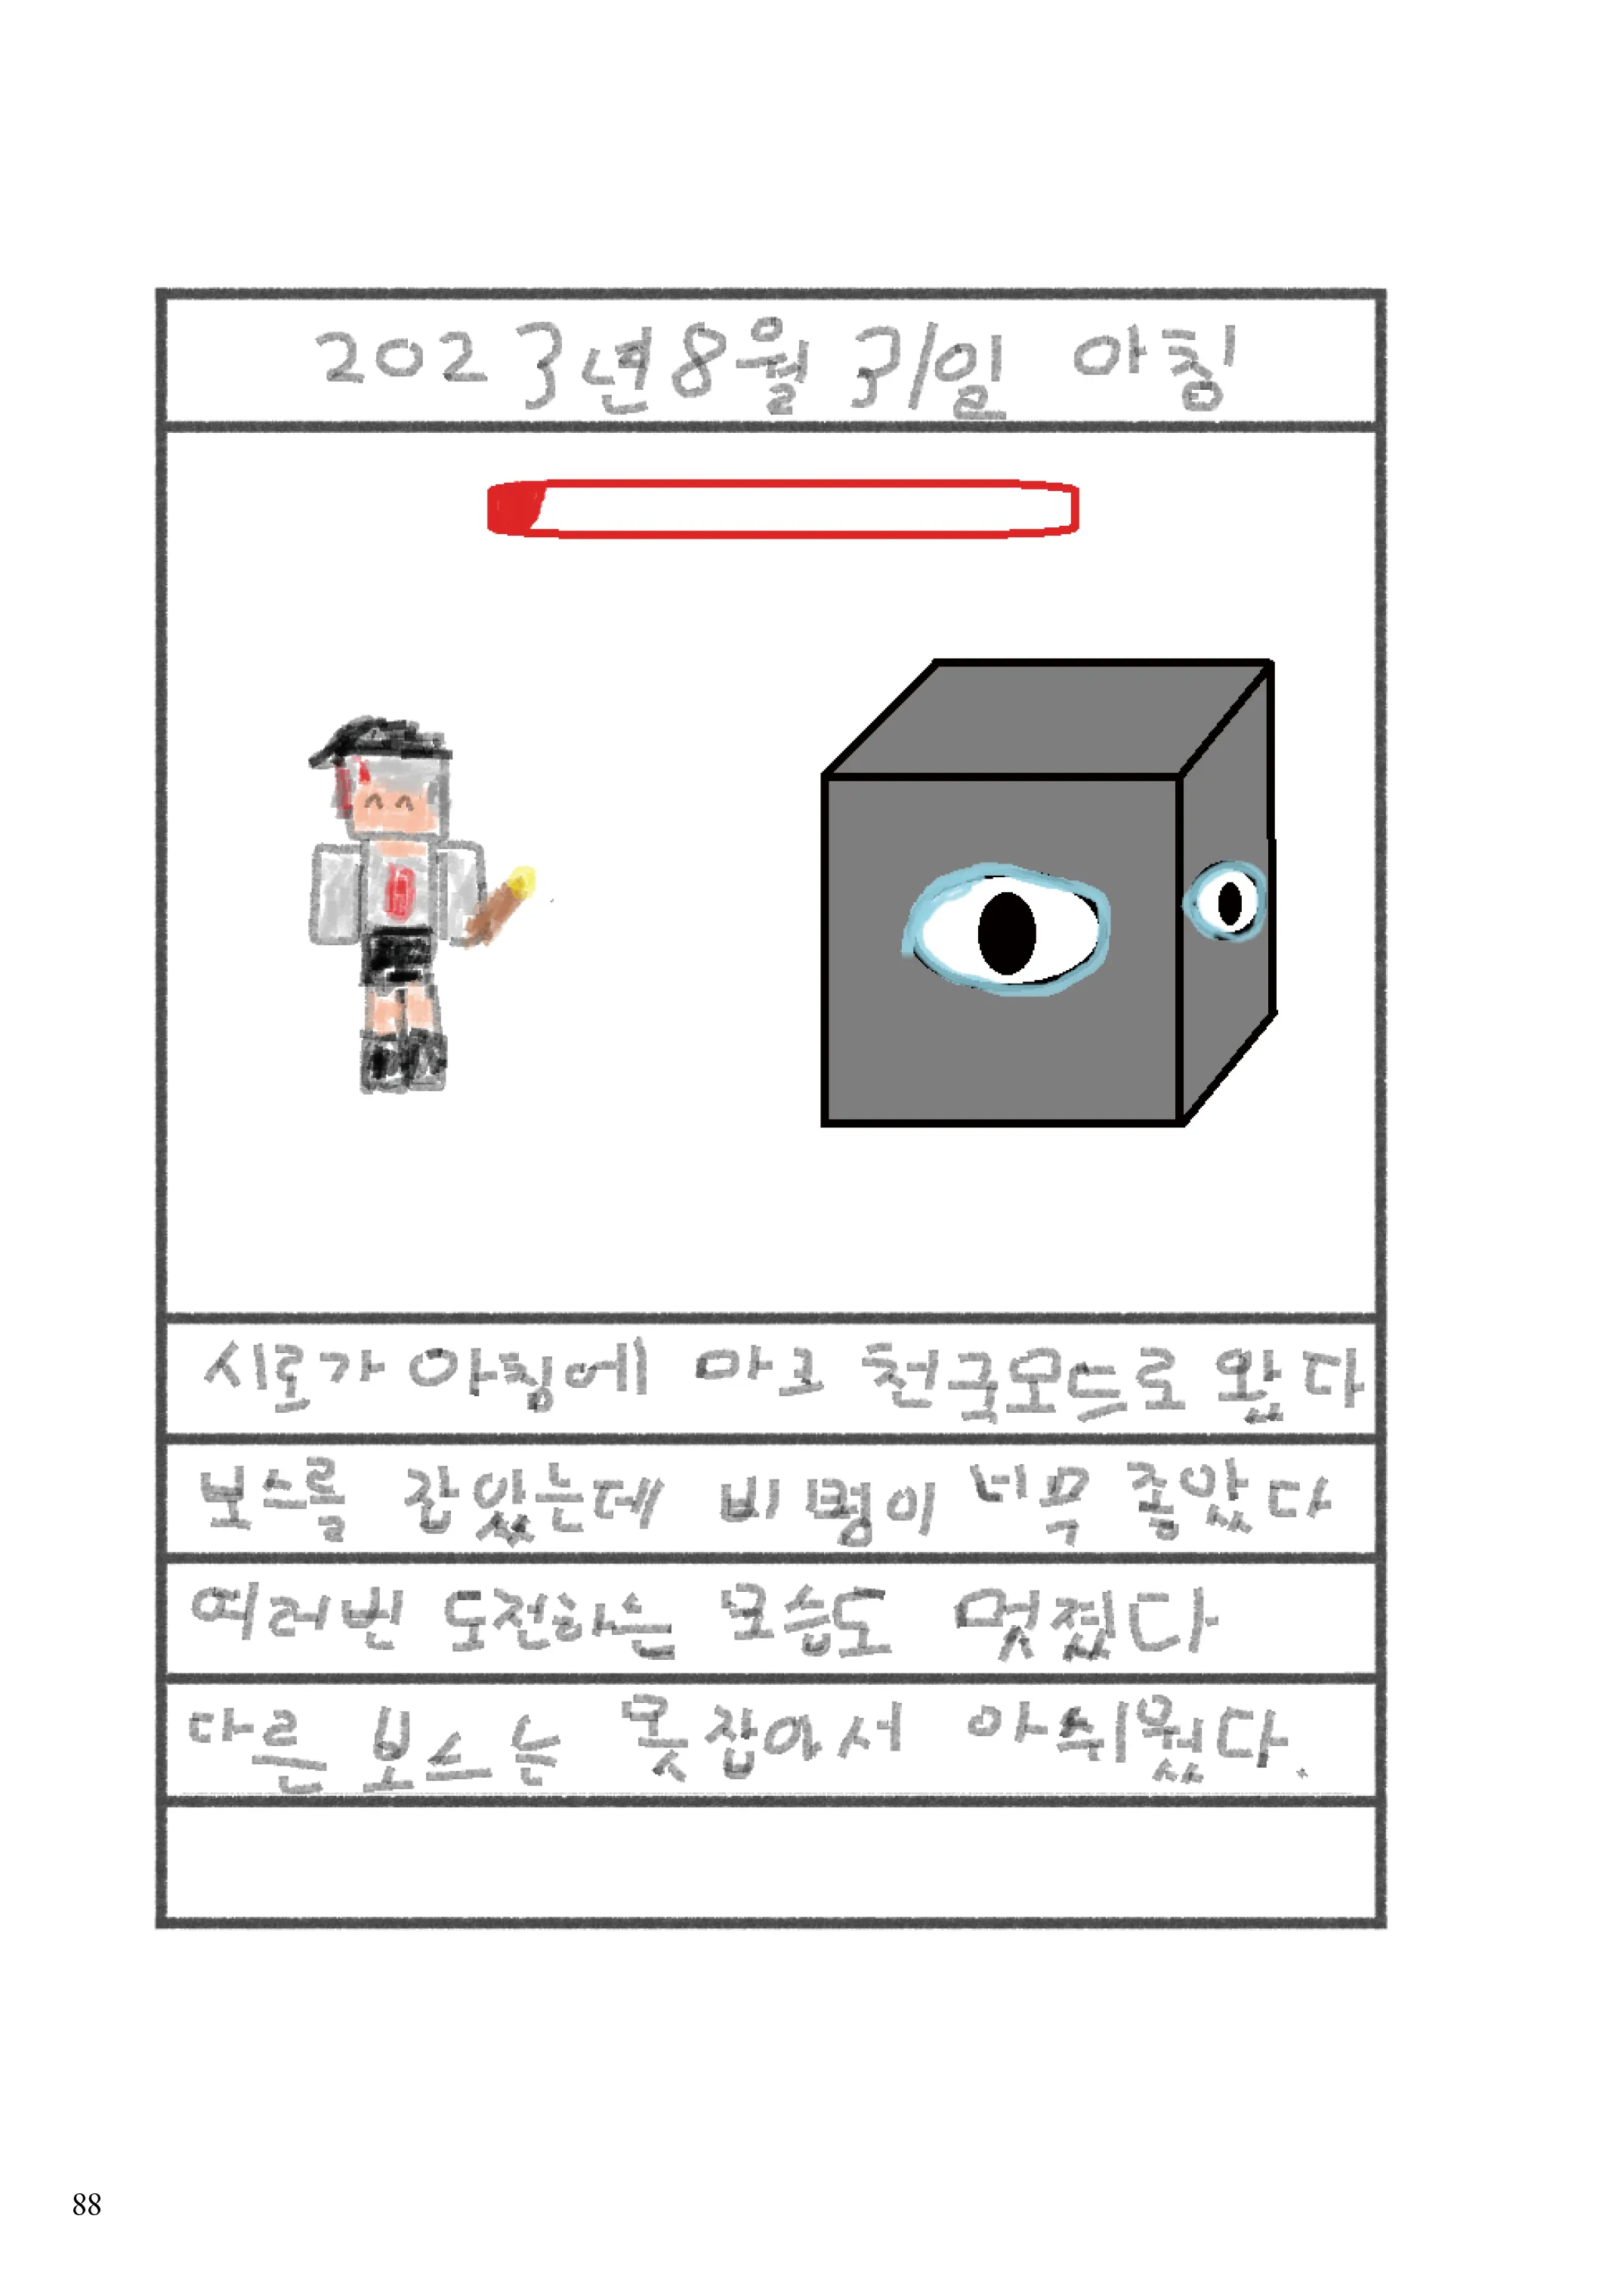 2023년 8월 31일 아침
시로가 아침에 마크 천국모드로 왔다
보스를 잡았는데 비명이 너무 좋았다
여러번 도전하는 모습도 멋졌다
다른 보스는 못잡아서 아쉬웠다.
88